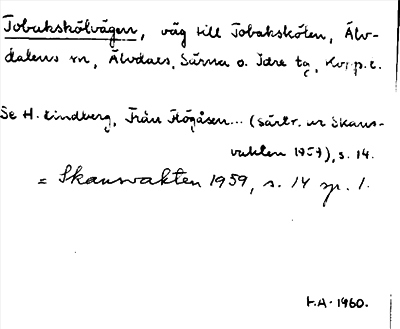 Tobakskölvägen, väg till Tobakskölen, Älv-
dalens sn, Älvdals, Särna o. Idre tg, Kopp. l.
Se H. Lindberg, Från Högåsen... (särtr. ur Skans-
vakten 1959), s. 14.
= Skansvakten 1959, s. 14 sp. 1.
H.A. 1960.